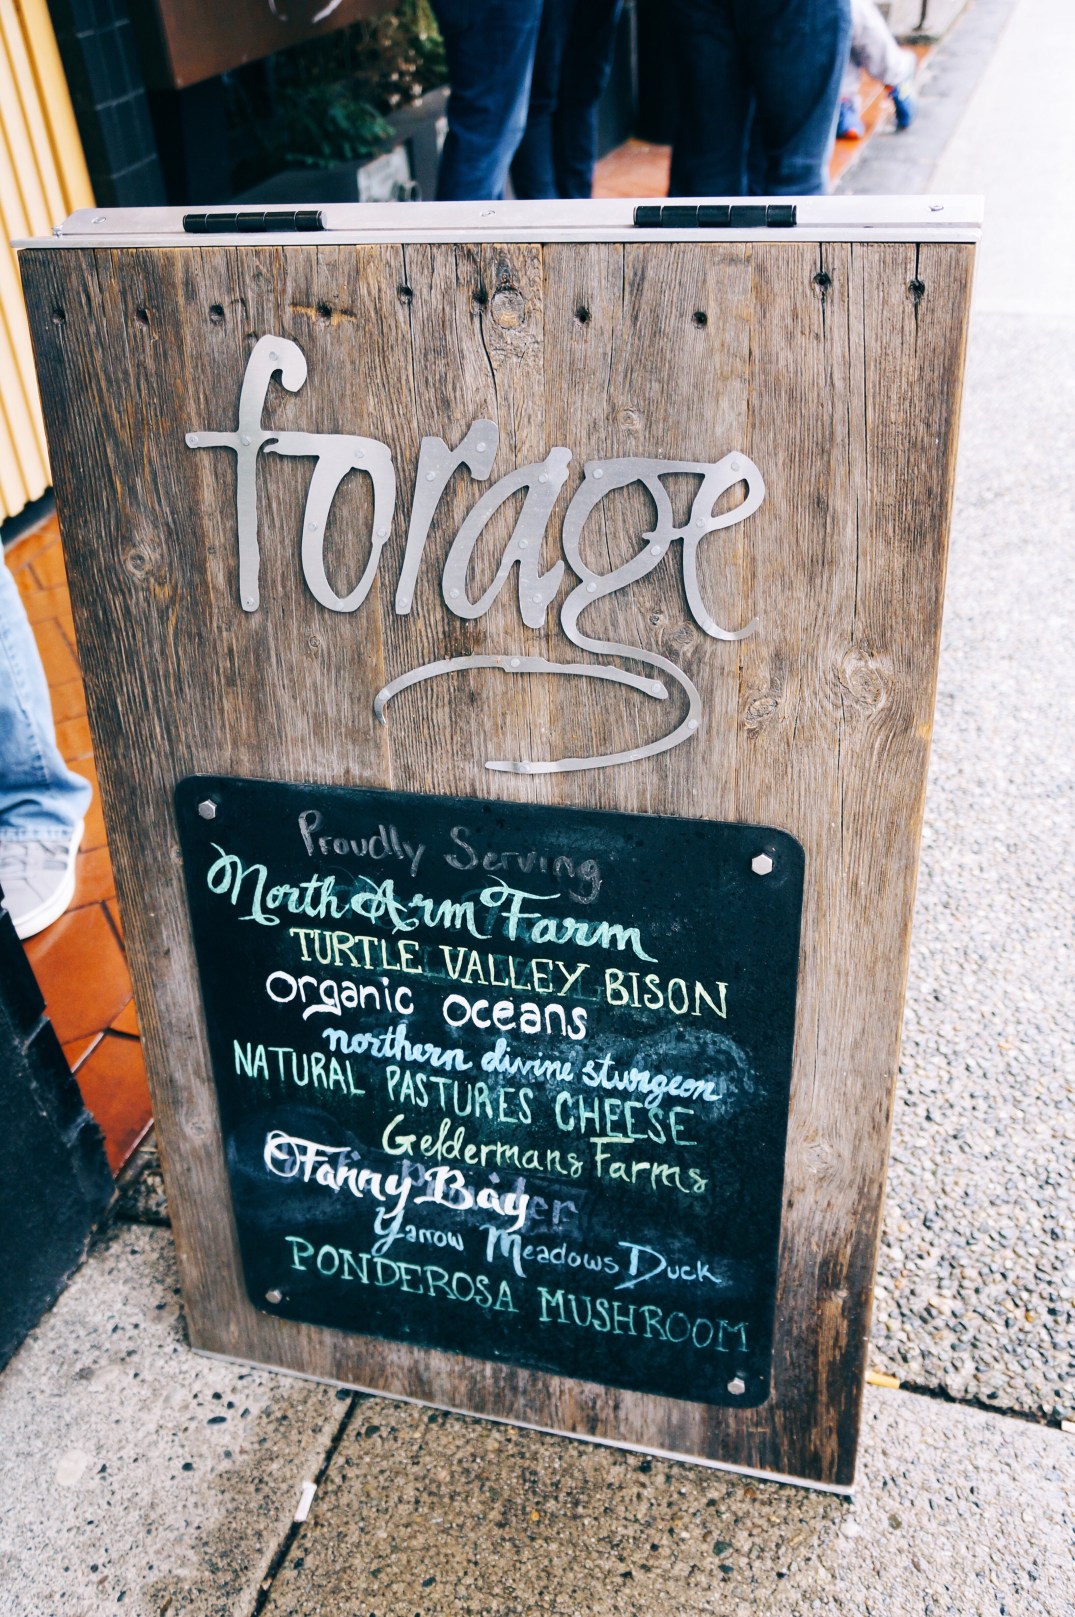 forage
Proudly Serving
North Arm Farm
TURTLE VALLEY BISON
organic oceans
northern divine sturgeon
NATURAL PASTURES CHEESE
Geldermans Farms
Fanny Bay
Yarrow Meadows Duck
PONDEROSA MUSHROOM